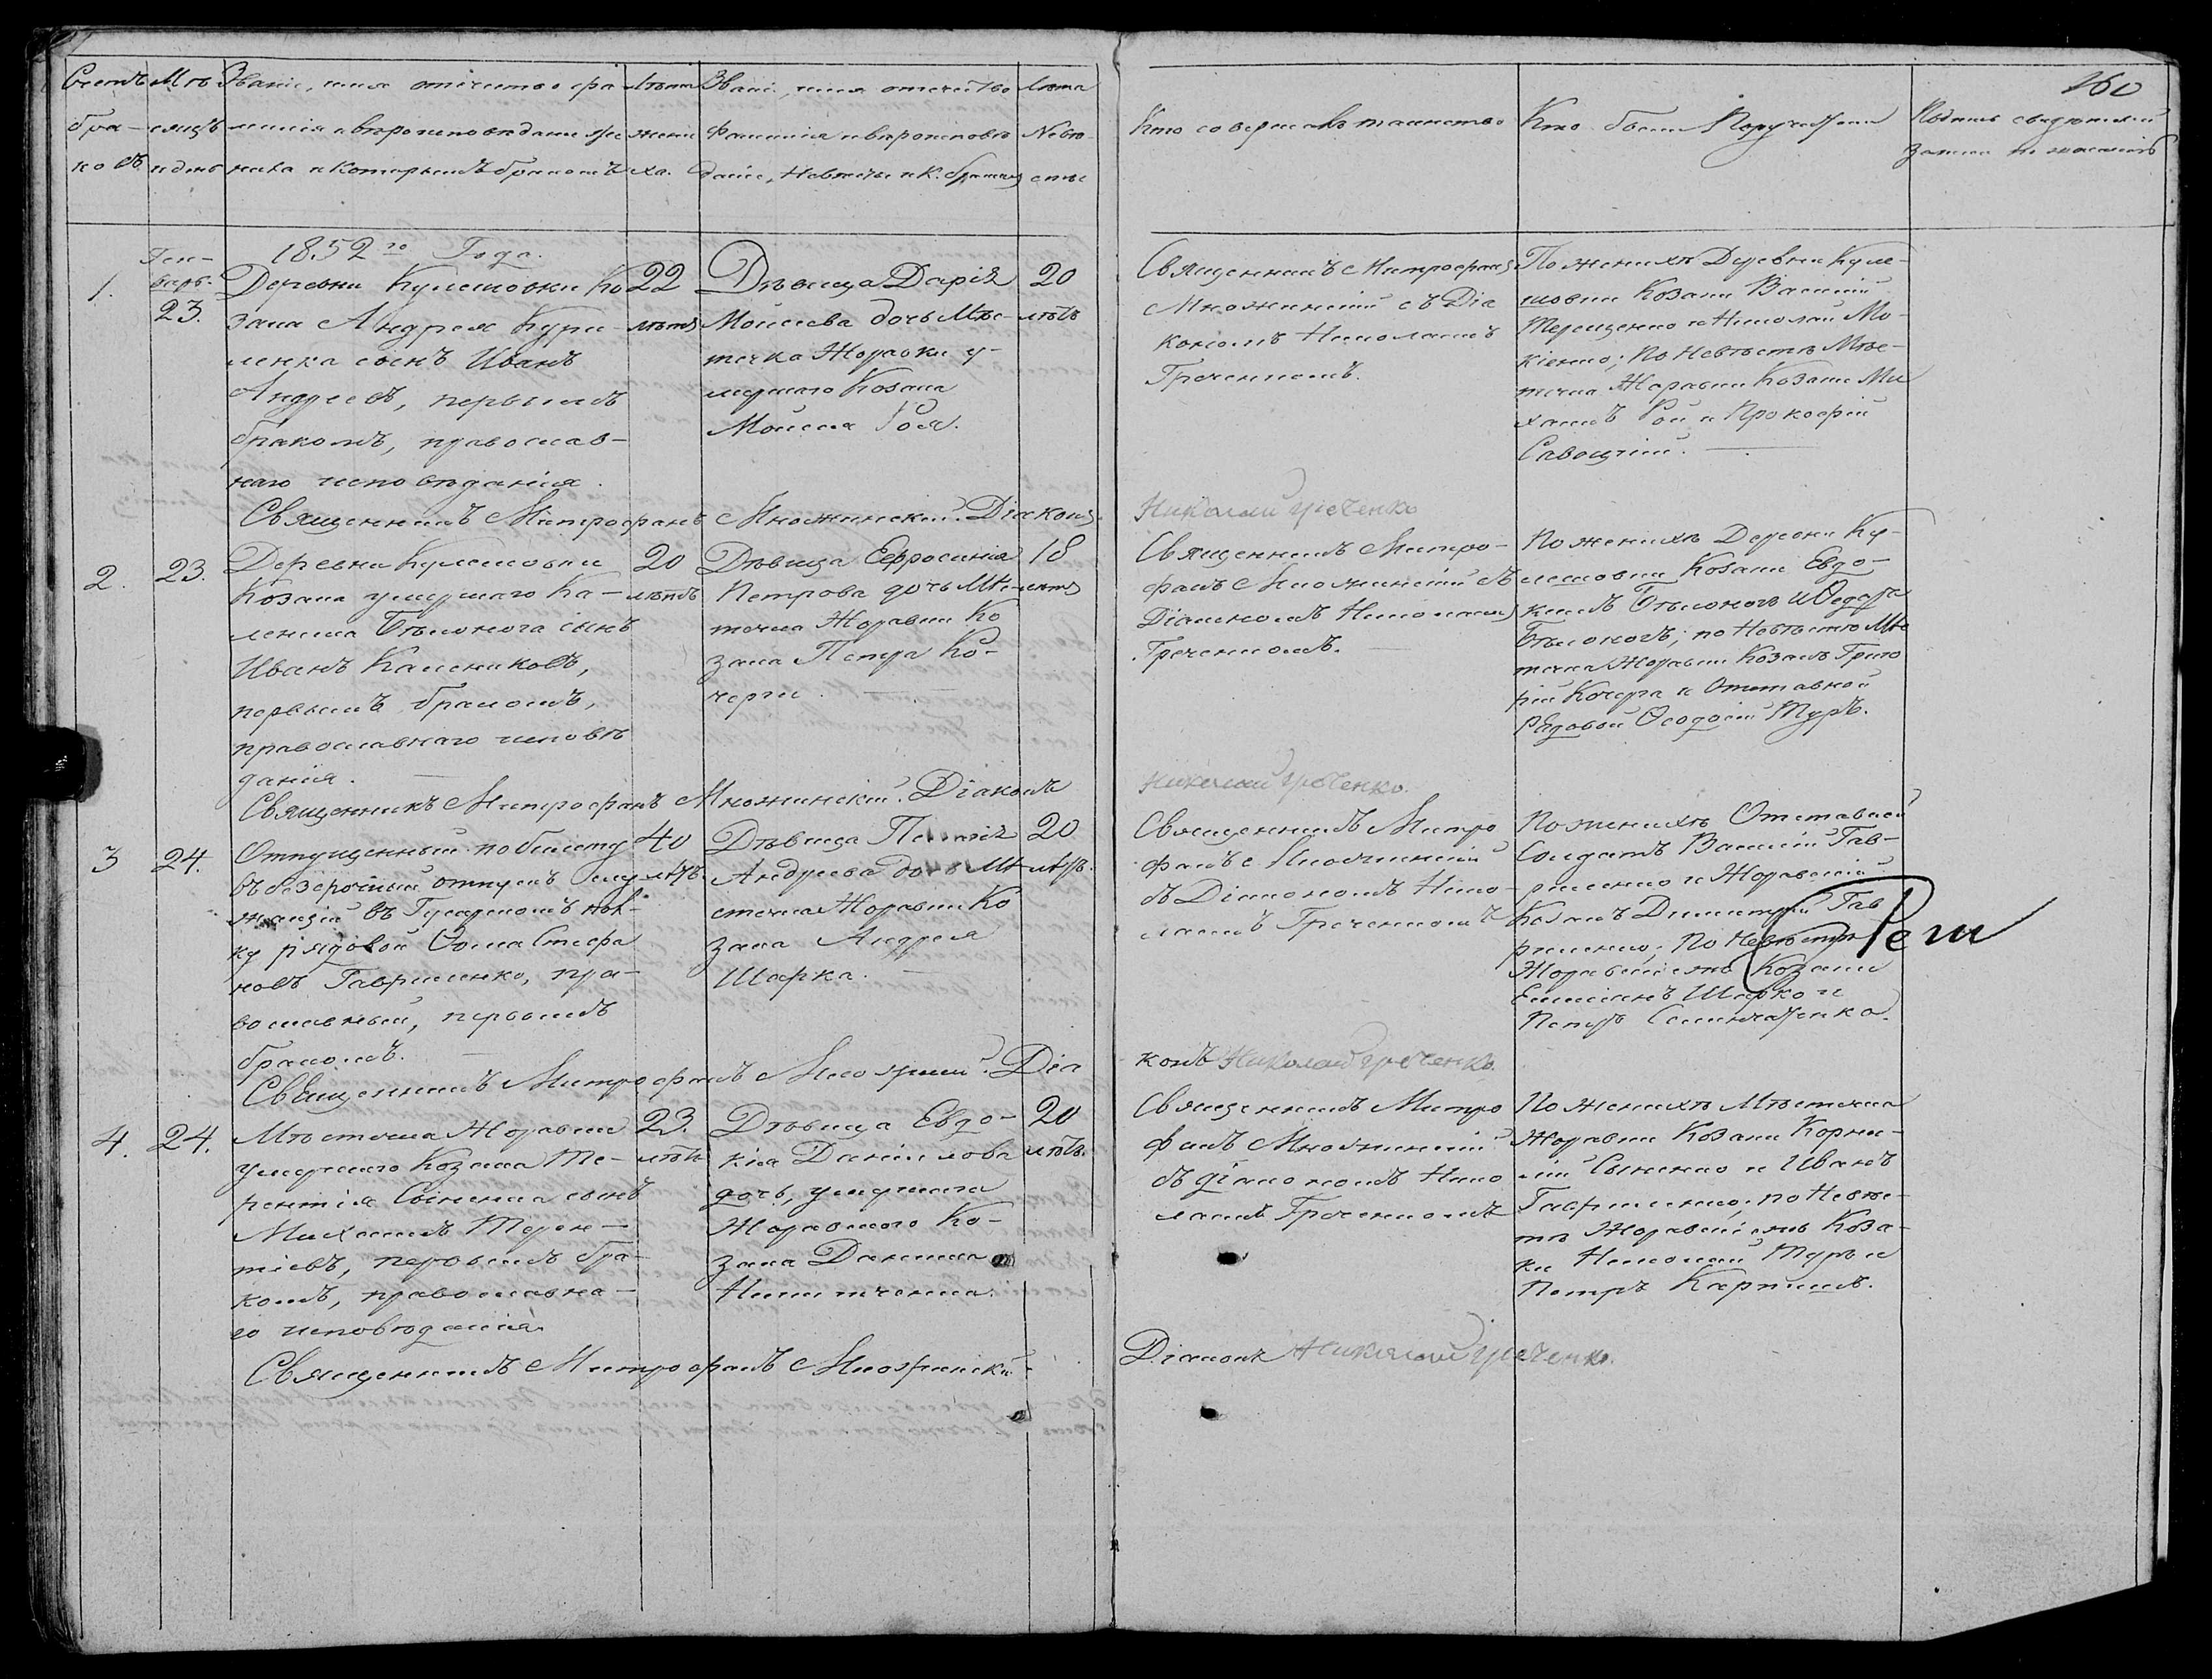 160
Счетъ бра-ковъ
Мѣсяцъ и день
Званіе, имя отчество фамилія и вѣроисповѣданіе жениха и которымъ бракомъ
Лѣта жениха.
Званіе, имя отечество фамилія и вѣроисповѣданіе, Невѣсты и К. бракомъ
Лѣта Невѣсты
Кто совершалъ таинство
Кто былъ Поручители
Подпись свидѣтелей записи по желанію
1852го Года.
1.
Ген-
варь.
23.
Деревни Кулешовки Ко
зака Андрея Кури-
ленка сынъ Иванъ
Андреевъ, первымъ
бракомъ, православ-
наго исповѣданія.
22
лѣтъ
Дѣвица Дарія
Моисеева дочь Мѣс-
течка Жоравки у-
мершаго Козака
Моисея Роя.
20
лѣтъ
Священникъ Митрофанъ
Множинскій съ Діа
кономъ Николаемъ
Греченкомъ.
По женихѣ Деревни Куле-
шовки Козаки Василій
Терещенко и Николай Мо-
кіенко; По Невѣстѣ Мѣс-
течка Жоравки Козаки Ми
хаилъ Рой и Прокофій
Савощкій.
Священникъ Митрофанъ Множинскій. Діаконъ
Николай Греченко
2.
23.
Деревни Кулешовки
Козака умершаго Ка-
леника Бѣлонога сынъ
Иванъ Калениковъ,
первымъ бракомъ,
православнаго исповѣ
данія.
20
лѣтъ
Дѣвица Ефросинія
Петрова дочь Мѣс-
течка Жоравки Ко
зака Петра Ко-
черги.
18
лѣтъ
Священникъ Митро-
фанъ Множинскій съ
Діакономъ Николаемъ
Греченкомъ.
По женихѣ Деревни Ку-
лешовки Козаки Евдо-
кимъ Бѣлоногъ и Федоръ
Бѣлоногъ; по Невѣстѣ Мѣс
течка Жоравки Козакъ Григо
рій Кочерга и Отставной
Рядовой Феодосій Туръ.
Священникъ Митрофанъ Множинскій. Діаконъ
Николай Греченко.
3
24.
Отпущенный по билету
въ безсрочный отпускъ слу
жащій въ Гусарскомъ пол-
ку рядовой Фома Стефа
новъ Гавриленко, пра-
вославный, первымъ
бракомъ.
40
лѣтъ.
Дѣвица
Андреева дочь Мѣ-
стечка Жоравки Ко
зака Андрея
Шарка.
20
лѣтъ.
Священникъ Митро
фанъ Множинскій
съ Діакономъ Нико-
лаемъ Греченкомъ
По женихѣ Отставной
Солдатъ Василій Гав-
риленко и Жоравскій
Козакъ Димитрій Гав
риленко; По Невѣстѣ
Жоравскіе Козаки
Емиліанъ Шарко и
Петръ
Священникъ Митрофанъ Множинскій. Діа
конъ Николай Греченко.
4.
24.
Мѣстечка Жоравки
умершаго Козака Те-
рентія Сыненка сынъ
Михаилъ Терен-
тіевъ, первымъ бра-
комъ, православна-
го исповѣданія.
23.
лѣтъ
Дѣвица Евдо-
кія Даніилова
дочь, умершаго
Жоравского Ко-
зака Даніила
Никитченка.
20
лѣтъ.
Священникъ Митро
фанъ Множинскій
съ діакономъ Нико
лаемъ Греченкомъ
По женихѣ Мѣстечка
Жоравки Козаки Корни-
лій Сыненко и Иванъ
Гавриленко; по Невѣс-
тѣ Жоравскіе Коза-
ки Николай Туръ и
Петръ Карпишъ.
Священникъ Митрофанъ Множинскій
Діаконъ Николай Греченко.